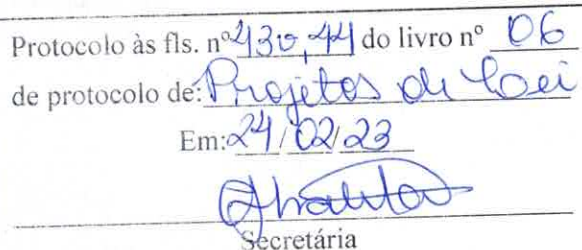 Protocolo às fls. nº 430,44 do livro nº 06
de protocolo de: Projetos de Lei
Em: 24/02/23
Secretária